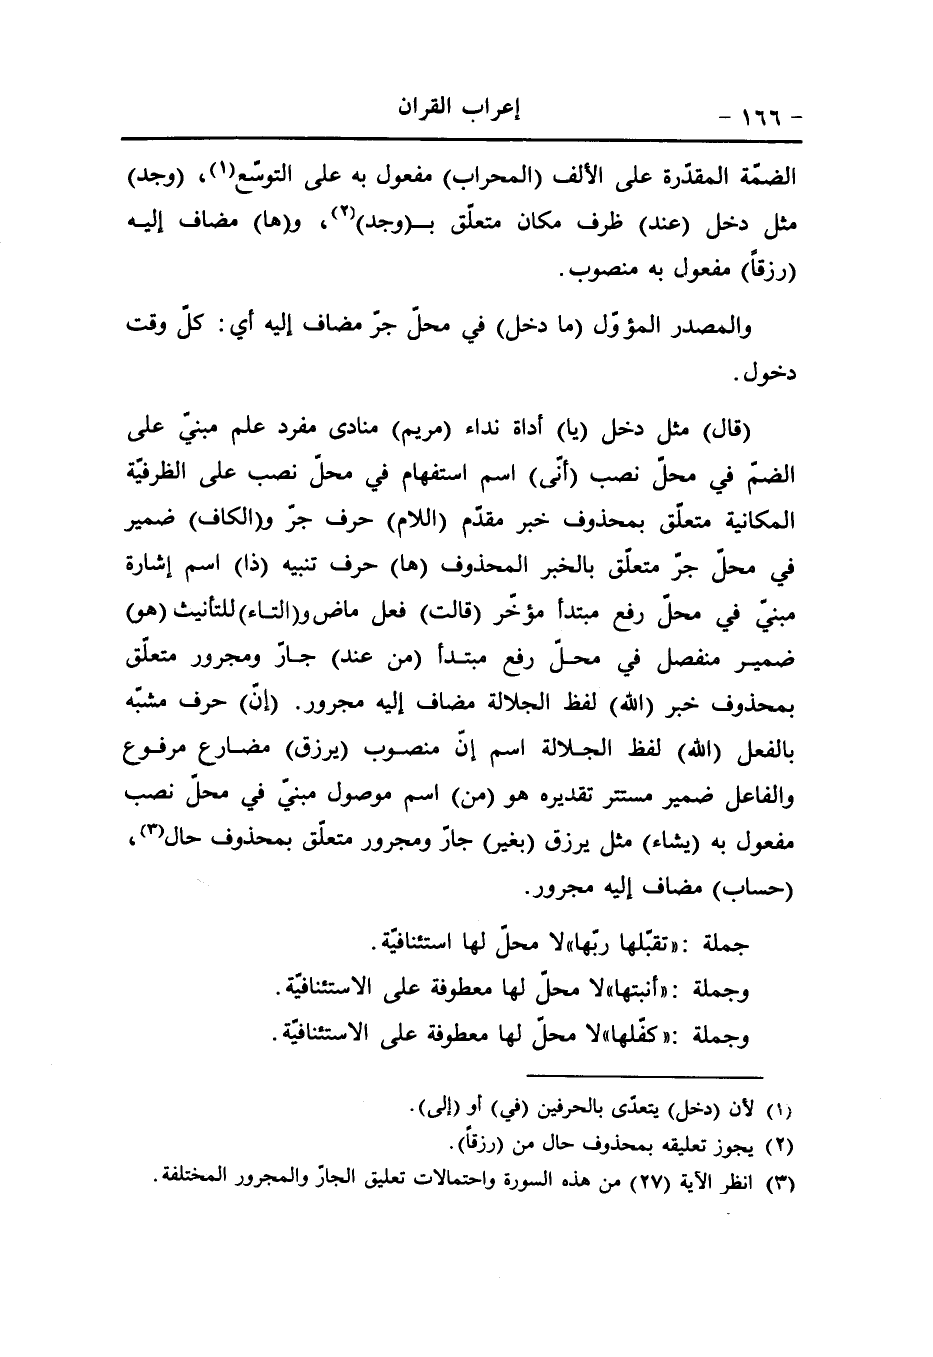 - ١٦٦ - إعراب القران
الضمّة المقدّرة على الألف (المحراب) مفعول به على التوسّع(١)، (وجد)
مثل دخل (عند) ظرف مكان متعلّق بـ(وجد)(٢)، و(ها) مضاف إليه
(رزقاً) مفعول به منصوب.
والمصدر المؤوّل (ما دخل) في محلّ جرّ مضاف إليه أي: كلّ وقت
دخول.
(قال) مثل دخل (يا) أداة نداء (مريم) منادى مفرد علم مبنيّ على
الضمّ في محلّ نصب (أنّى) اسم استفهام في محلّ نصب على الظرفيّة
المكانية متعلّق بمحذوف خبر مقدّم (اللام) حرف جرّ و(الكاف) ضمير
في محلّ جرّ متعلّق بالخبر المحذوف (ها) حرف تنبيه (ذا) اسم إشارة
مبنيّ في محلّ رفع مبتدأ مؤخّر (قالت) فعل ماض و(التاء) للتأنيث (هو)
ضمير منفصل في محلّ رفع مبتدأ (من عند) جارّ ومجرور متعلّق
بمحذوف خبر (الله) لفظ الجلالة مضاف إليه مجرور. (إنّ) حرف مشبّه
بالفعل (الله) لفظ الجلالة اسم إنّ منصوب (يرزق) مضارع مرفوع
والفاعل ضمير مستتر تقديره هو (من) اسم موصول مبنيّ في محلّ نصب
مفعول به (يشاء) مثل يرزق (بغير) جارّ ومجرور متعلّق بمحذوف حال(٣)،
(حساب) مضاف إليه مجرور.
جملة :«تقبّلها ربّها» لا محلّ لها استئنافيّة.
وجملة :«أنبتها» لا محلّ لها معطوفة على الاستئنافيّة.
وجملة :«كفّلها» لا محلّ لها معطوفة على الاستئنافيّة.
(١) لأن (دخل) يتعدّى بالحرفين (في) أو (إلى).
(٢) يجوز تعليقه بمحذوف حال من (رزقاً).
(٣) انظر الآية (٢٧) من هذه السورة واحتمالات تعليق الجارّ والمجرور المختلفة.